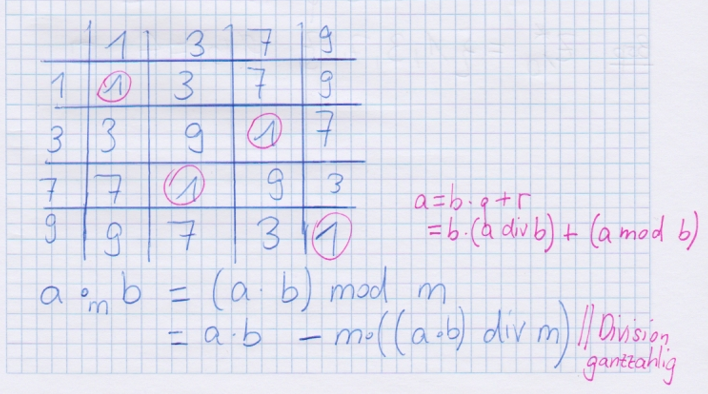 1 3 7 9
1 1 3 7 9
3 3 9 1 7
7 7 1 9 3
9 9 7 3 1
a=b·q+r
=b·(a div b) + (a mod b)
a •m b = (a · b) mod m
= a·b - m·((a·b) div m) // Division
gantzahlig